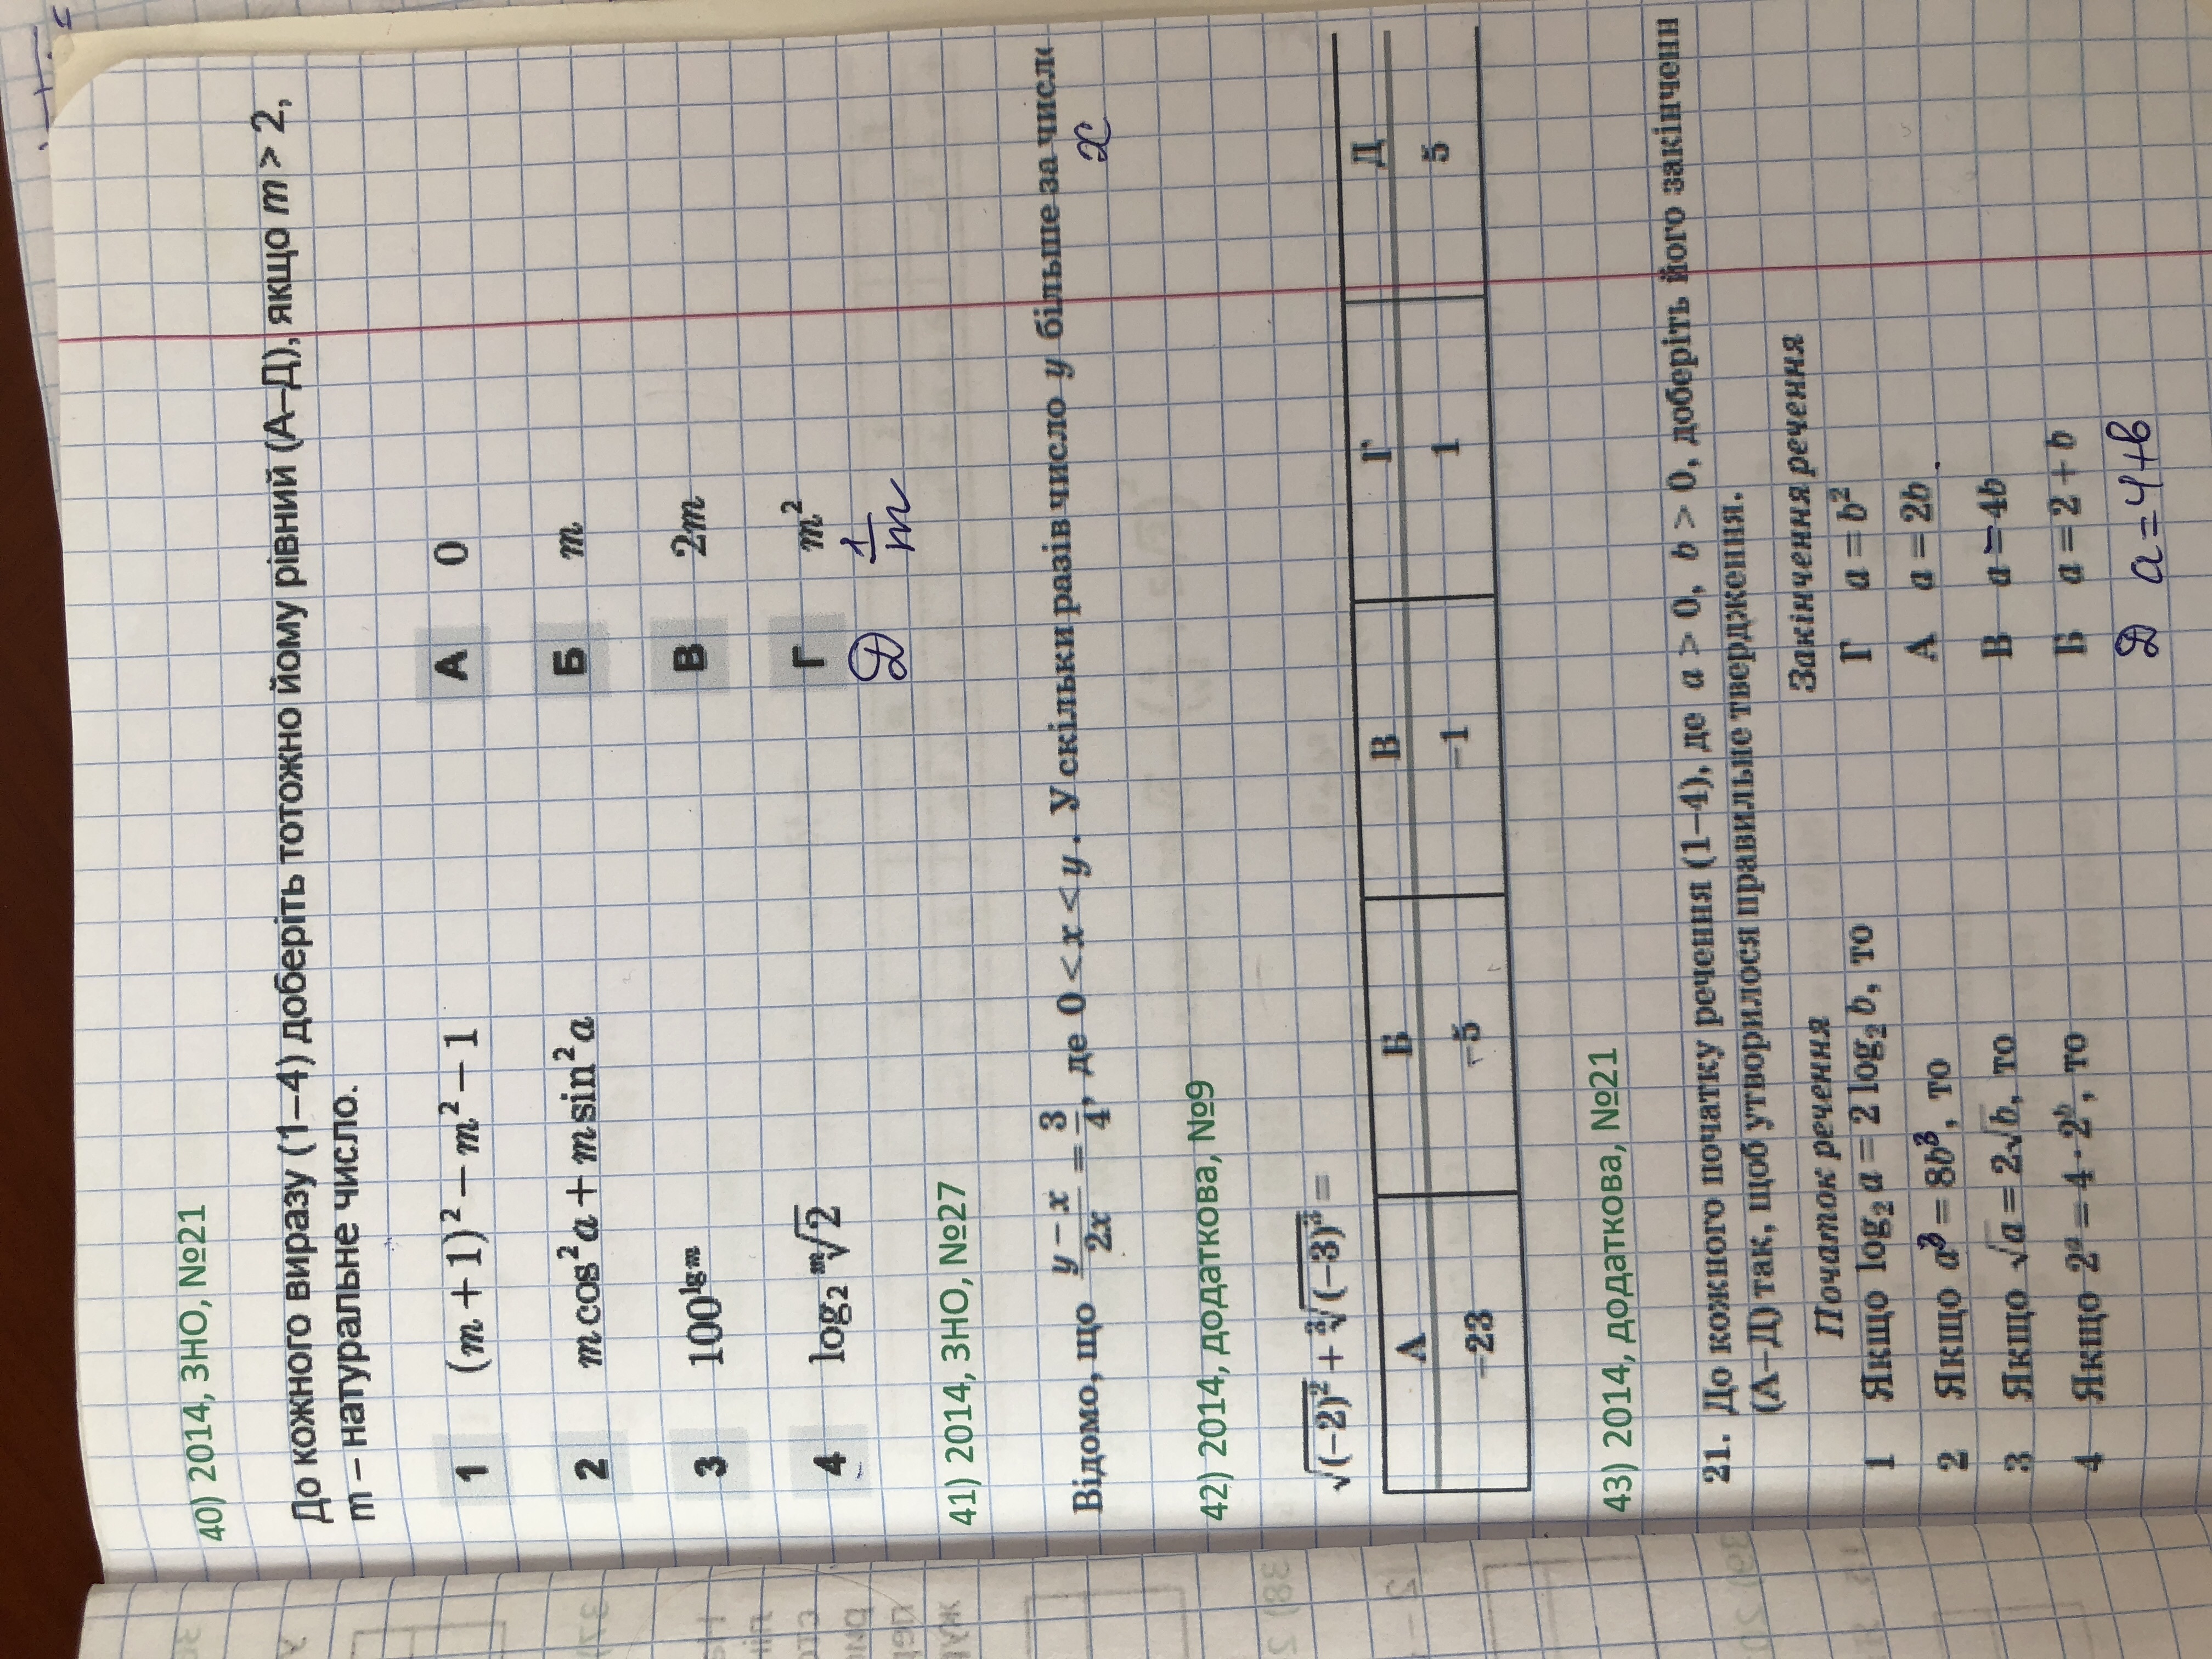 40) 2014, ЗНО, №21
До кожного виразу (1–4) доберіть тотожно йому рівний (А–Д), якщо m > 2,
m – натуральне число.
1 (m + 1)² − m² − 1 А 0
2 m cos² a + m sin² a Б m
3 100^{lg m} В 2m
4 log₂ ᵐ√2 Г m²
Д 1/m
41) 2014, ЗНО, №27
Відомо, що (y − x)/(2x) = 3/4, де 0 < x < y. У скільки разів число y більше за число
x
42) 2014, додаткова, №9
√(−2)² + ³√(−3)³ =
А Б В Г Д
−23 −5 −1 1 5
43) 2014, додаткова, №21
21. До кожного початку речення (1–4), де a > 0, b > 0, доберіть його закінченн
(А–Д) так, щоб утворилося правильне твердження.
Початок речення Закінчення речення
1 Якщо log₂ a = 2 log₂ b, то Г a = b²
2 Якщо a³ = 8b³, то А a = 2b
3 Якщо √a = 2√b, то В a = 4b
4 Якщо 2ᵃ = 4 · 2ᵇ, то Б a = 2 + b
Д a = 4+b